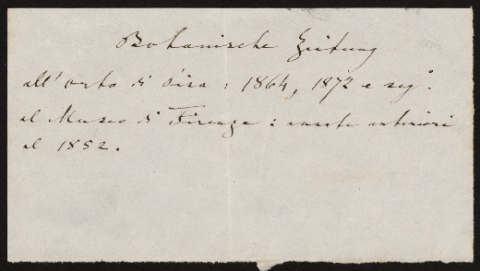 Botanische Zeitung
all'orto di Pisa: 1864, 1872 e seg.
al Museo di Firenze: anteriori
al 1852.